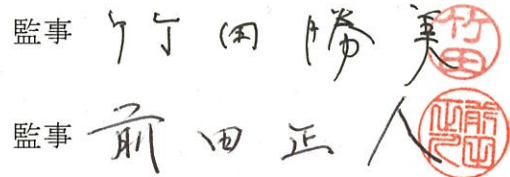 監事 竹田勝美 竹田
監事 前田正人 前田